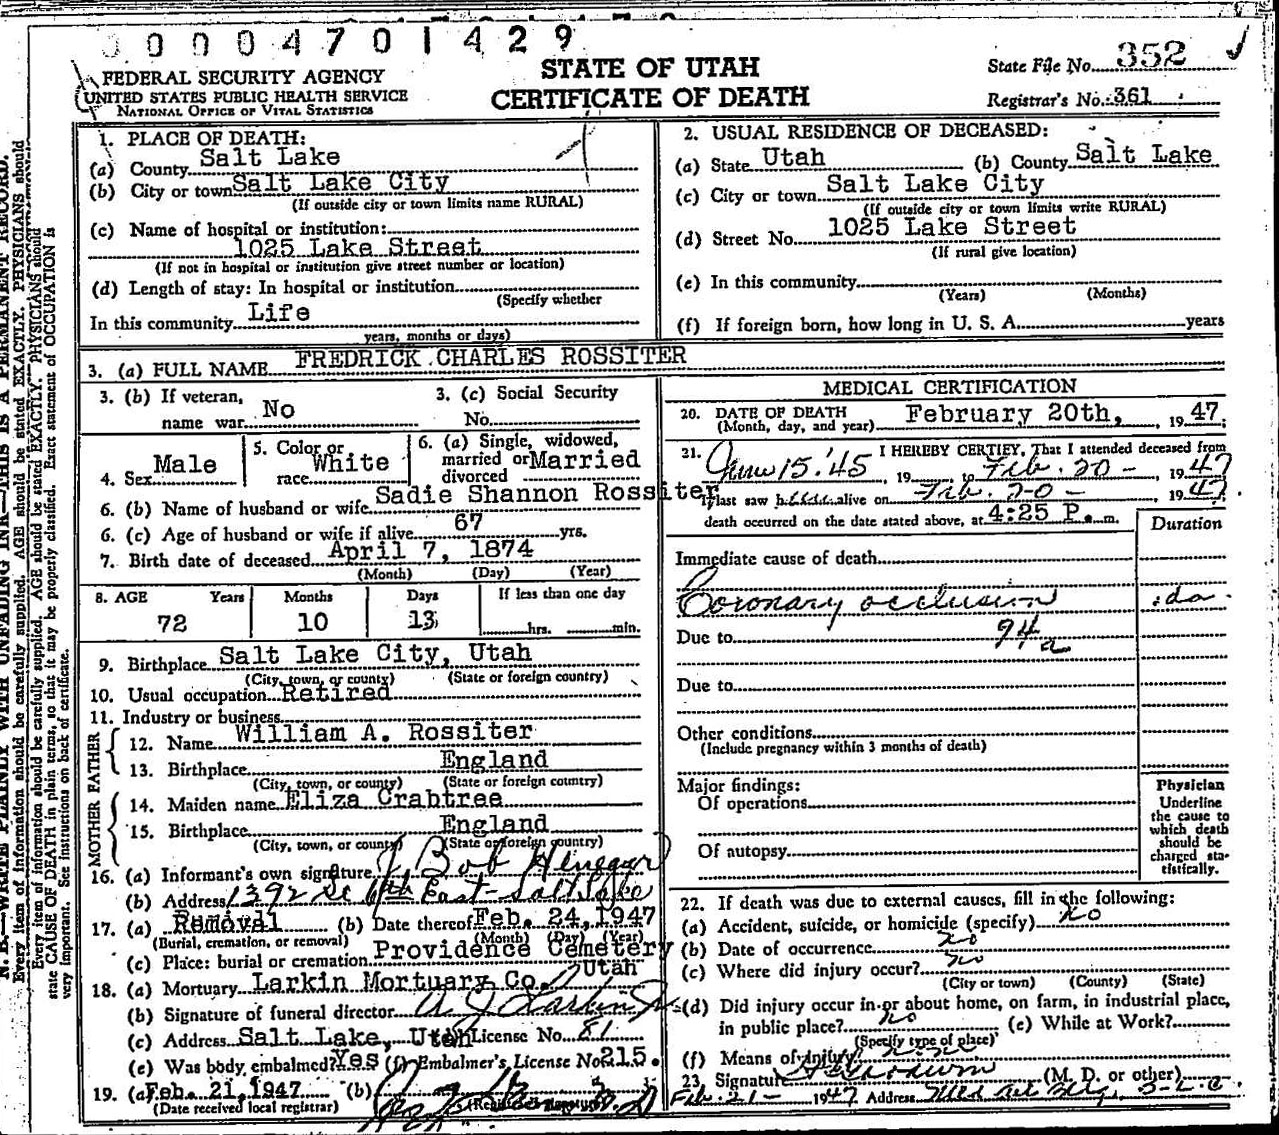 0 0 0 0 4 7 0 1 4 2 9
FEDERAL SECURITY AGENCY
UNITED STATES PUBLIC HEALTH SERVICE
NATIONAL OFFICE OF VITAL STATISTICS
STATE OF UTAH
CERTIFICATE OF DEATH
State File No. 352
Registrar's No. 361
N. B.—WRITE PLAINLY WITH UNFADING INK—THIS IS A PERMANENT RECORD.
Every item of information should be carefully supplied. AGE should be stated EXACTLY. PHYSICIANS should
state CAUSE OF DEATH in plain terms, so that it may be properly classified. Exact statement of OCCUPATION is
very important. See instructions on back of certificate.
1. PLACE OF DEATH:
(a) County Salt Lake
(b) City or town Salt Lake City
(If outside city or town limits name RURAL)
(c) Name of hospital or institution:
1025 Lake Street
(If not in hospital or institution give street number or location)
(d) Length of stay: In hospital or institution
(Specify whether
In this community Life
years, months or days)
2. USUAL RESIDENCE OF DECEASED:
(a) State Utah (b) County Salt Lake
(c) City or town Salt Lake City
(If outside city or town limits write RURAL)
(d) Street No. 1025 Lake Street
(If rural give location)
(e) In this community
(Years) (Months)
(f) If foreign born, how long in U. S. A. years
3. (a) FULL NAME FREDRICK CHARLES ROSSITER
3. (b) If veteran, name war No
3. (c) Social Security No.
4. Sex Male
5. Color or race White
6. (a) Single, widowed, married or divorced Married
6. (b) Name of husband or wife Sadie Shannon Rossiter
6. (c) Age of husband or wife if alive 67 yrs.
7. Birth date of deceased April 7, 1874
(Month) (Day) (Year)
8. AGE Years Months Days If less than one day
72 10 13 hrs. min.
9. Birthplace Salt Lake City, Utah
(City, town, or county) (State or foreign country)
10. Usual occupation Retired
11. Industry or business
FATHER
12. Name William A. Rossiter
13. Birthplace England
(City, town, or county) (State or foreign country)
MOTHER
14. Maiden name Eliza Crabtree
15. Birthplace England
(City, town, or county) (State or foreign country)
16. (a) Informant's own signature J Bob Henegar
(b) Address 1392 So 6th East-Salt Lake
17. (a) Removal (b) Date thereof Feb. 24, 1947
(Burial, cremation, or removal) (Month) (Day) (Year)
(c) Place: burial or cremation Providence Cemetery
Utah
18. (a) Mortuary Larkin Mortuary Co.
(b) Signature of funeral director A J Larkin Jr
(c) Address Salt Lake, Utah License No. 81
(e) Was body embalmed? Yes (f) Embalmer's License No. 215.
19. (a) Feb. 21, 1947 (b)
(Date received local registrar)
MEDICAL CERTIFICATION
20. DATE OF DEATH February 20th, 1947
(Month, day, and year)
21. I HEREBY CERTIFY, That I attended deceased from
June 15 '45, 19 to Feb. 20 - 1947
I last saw him alive on Feb. 20 - 1947
death occurred on the date stated above, at 4:25 P. m.
Duration
Immediate cause of death
Coronary occlusion 1 da.
Due to 94a
Due to
Other conditions
(Include pregnancy within 3 months of death)
Major findings:
Of operations
Of autopsy
Physician
Underline
the cause to
which death
should be
charged sta-
tistically.
22. If death was due to external causes, fill in the following:
(a) Accident, suicide, or homicide (specify) no
(b) Date of occurrence no
(c) Where did injury occur? no
(City or town) (County) (State)
(d) Did injury occur in or about home, on farm, in industrial place,
in public place? no (e) While at Work?
(Specify type of place)
(f) Means of injury
23. Signature (M. D. or other)
Feb. 21 - 1947 Address Med Art Bldg, S-L-C.